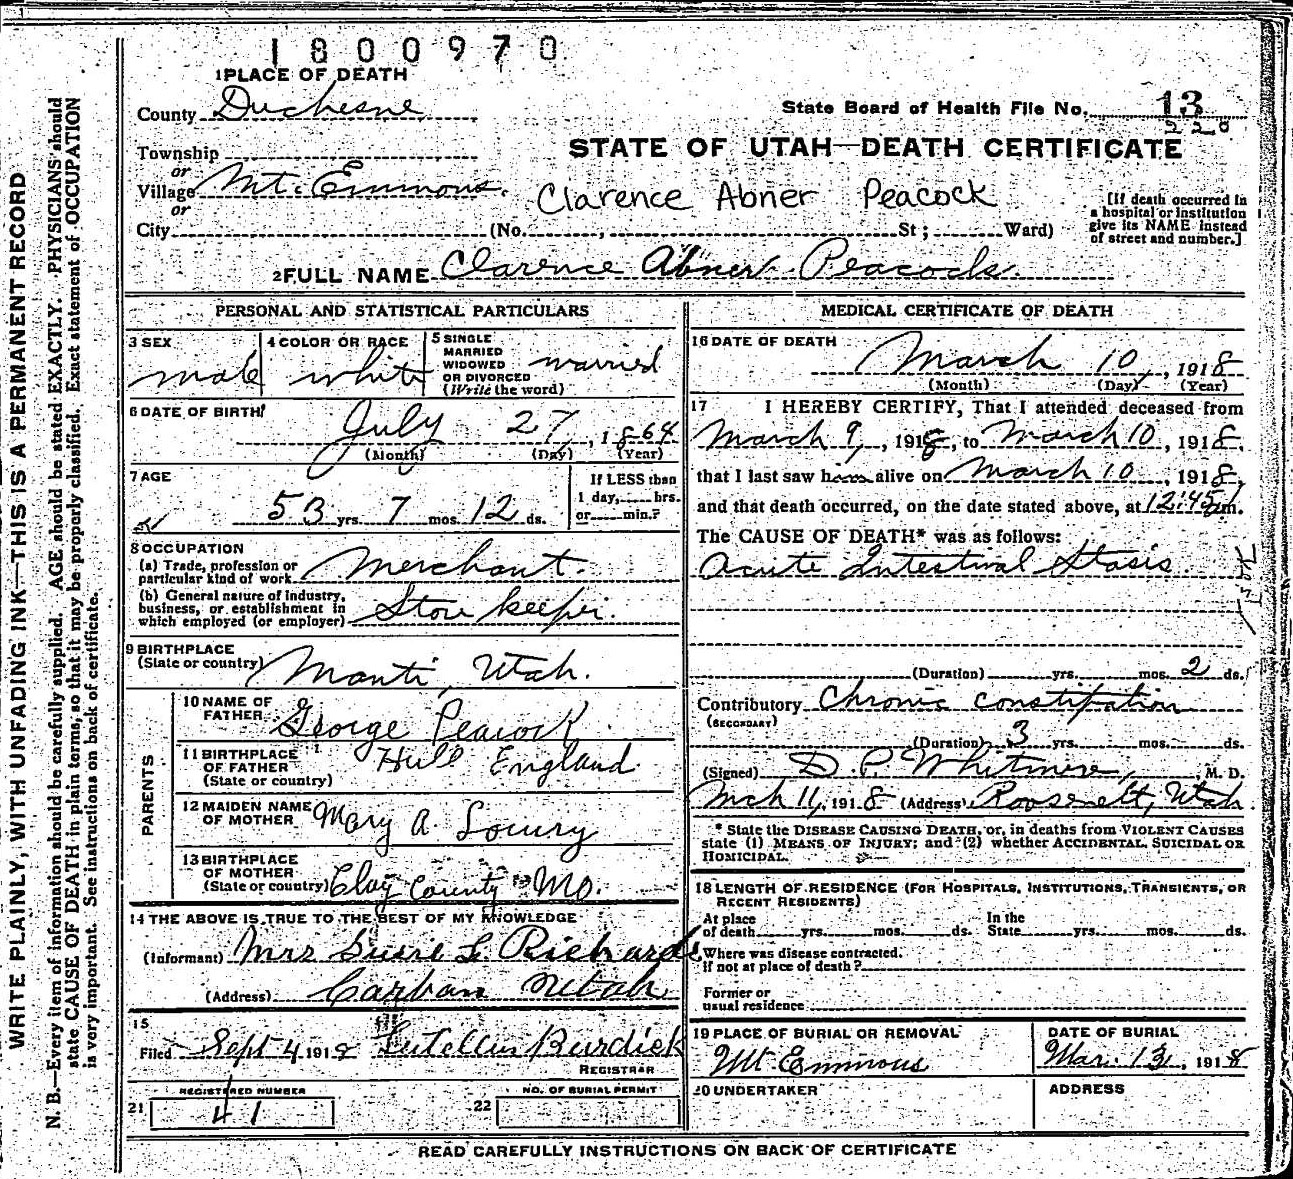 1800970
1 PLACE OF DEATH
County Duchesne
State Board of Health File No. 13
220
Township
or
STATE OF UTAH—DEATH CERTIFICATE
Village Mt. Emmons.
or
Clarence Abner Peacock
[If death occurred in
a hospital or institution
give its NAME instead
of street and number.]
City (No. , St; Ward)
2 FULL NAME Clarence Abner Peacock
PERSONAL AND STATISTICAL PARTICULARS
3 SEX
male
4 COLOR OR RACE
white
5 SINGLE
MARRIED
WIDOWED
OR DIVORCED
(Write the word)
married
6 DATE OF BIRTH
July 27, 1864
(Month) (Day) (Year)
7 AGE
53 yrs. 7 mos. 12 ds.
If LESS than
1 day, hrs.
or min.?
8 OCCUPATION
(a) Trade, profession or
particular kind of work Merchant.
(b) General nature of industry,
business, or establishment in
which employed (or employer) Store keeper.
9 BIRTHPLACE
(State or country) Manti, Utah.
PARENTS
10 NAME OF
FATHER George Peacock.
11 BIRTHPLACE
OF FATHER
(State or country) Hull England.
12 MAIDEN NAME
OF MOTHER Mary A. Lowry
13 BIRTHPLACE
OF MOTHER
(State or country) Clay County Mo.
14 THE ABOVE IS TRUE TO THE BEST OF MY KNOWLEDGE
(Informant) Mrs Susie L. Richards
(Address) Carban Utah
15
Filed Sept 4 1918 Burdick
REGISTRAR
REGISTERED NUMBER
21 41
NO. OF BURIAL PERMIT
22
MEDICAL CERTIFICATE OF DEATH
16 DATE OF DEATH
March 10, 1918
(Month) (Day) (Year)
17 I HEREBY CERTIFY, That I attended deceased from
March 9, 1918, to March 10, 1918,
that I last saw him alive on March 10, 1918,
and that death occurred, on the date stated above, at 12:45 m.
The CAUSE OF DEATH* was as follows:
Acute Intestinal Stasis.
(Duration) yrs. mos. 2 ds.
Contributory Chronic constipation
(SECONDARY)
(Duration) 3 yrs. mos. ds.
(Signed) D. P. Whitmore, M. D.
Mch 11, 1918 (Address) Roosevelt, Utah.
* State the DISEASE CAUSING DEATH, or, in deaths from VIOLENT CAUSES
state (1) MEANS OF INJURY; and (2) whether ACCIDENTAL, SUICIDAL OR
HOMICIDAL.
18 LENGTH OF RESIDENCE (FOR HOSPITALS, INSTITUTIONS, TRANSIENTS, OR
RECENT RESIDENTS)
At place
of death yrs. mos. ds.
In the
State yrs. mos. ds.
Where was disease contracted,
if not at place of death?
Former or
usual residence
19 PLACE OF BURIAL OR REMOVAL
Mt Emmons
DATE OF BURIAL
Mar. 13, 1918
20 UNDERTAKER
ADDRESS
READ CAREFULLY INSTRUCTIONS ON BACK OF CERTIFICATE
WRITE PLAINLY, WITH UNFADING INK—THIS IS A PERMANENT RECORD
N. B.—Every item of information should be carefully supplied. AGE should be stated EXACTLY. PHYSICIANS should
state CAUSE OF DEATH in plain terms, so that it may be properly classified. Exact statement of OCCUPATION
is very important. See instructions on back of certificate.